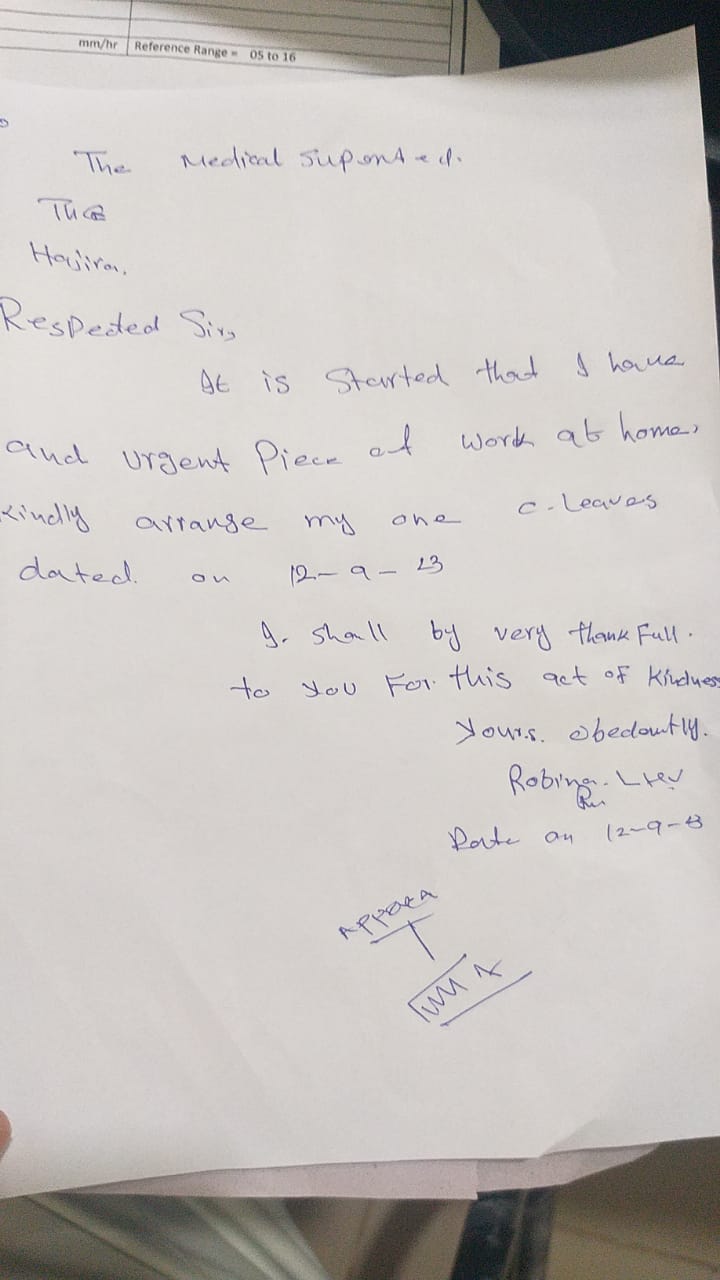 mm/hr Reference Range = 05 to 16
The Medical Suported.
THQ
Hajira.
Respected Sir,
It is Started that I have
and urgent Piece of work at home,
Kindly arrange my one c. Leaves
dated. on 12-9-23
I. shall by very thank Full.
to you For this act of Kindness
Yours. obedountly.
Robina. LHV
Date on 12-9-23